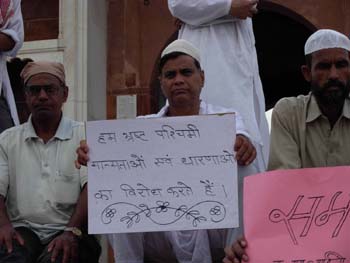 हम भ्रष्ट पश्चिमी
मान्यताओं एवं धारणाओं
का विरोध करते हैं।
सम